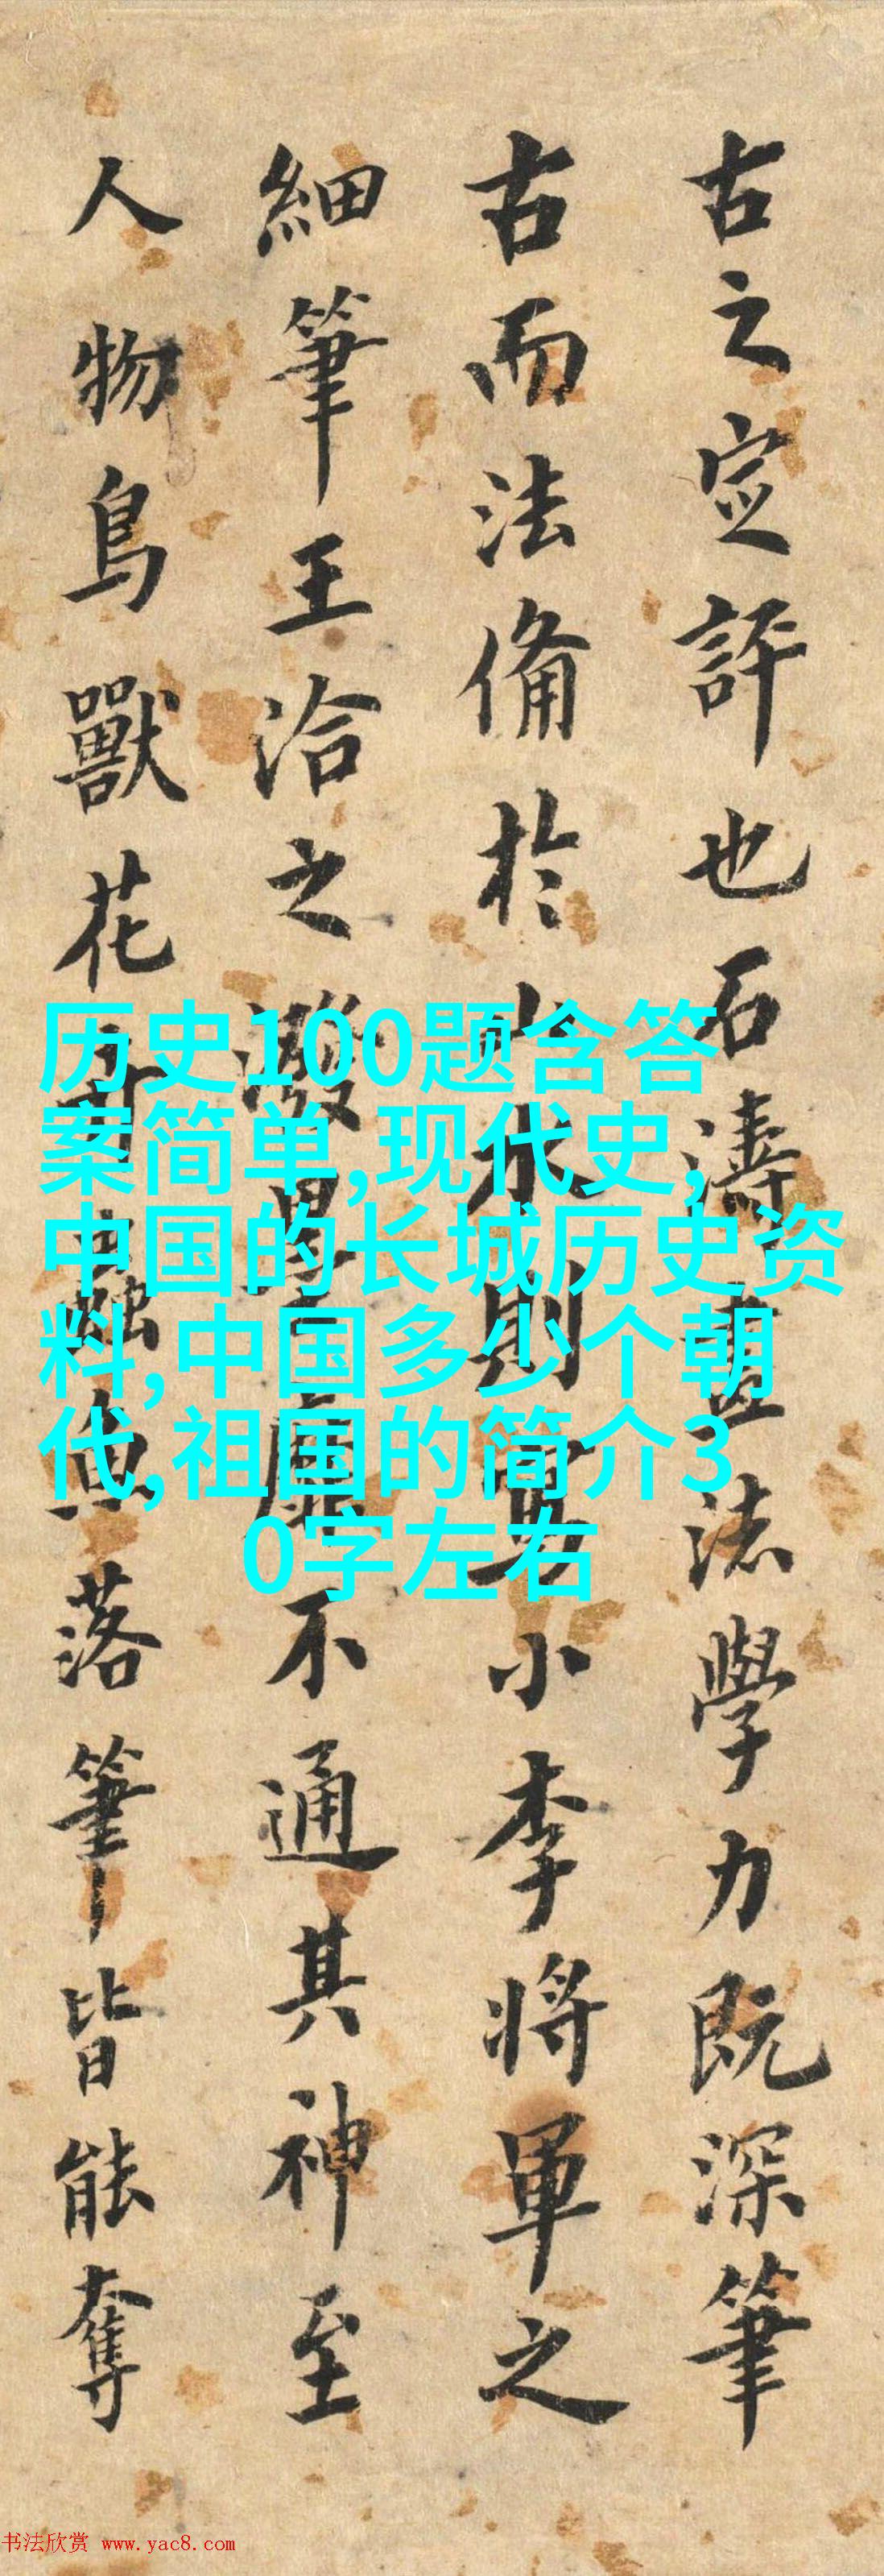 古之定評也石濤畫法學力既深筆
古而法備於山水則兼小李將軍之
細筆王洽之潑墨靡不通其神至
人物鳥獸花卉蟲魚落筆皆能奪
历史100题含答
案简单,现代史,
中国的长城历史资
料,中国多少个朝
代,祖国的简介3
0字左右
书法欣赏 www.yac8.com